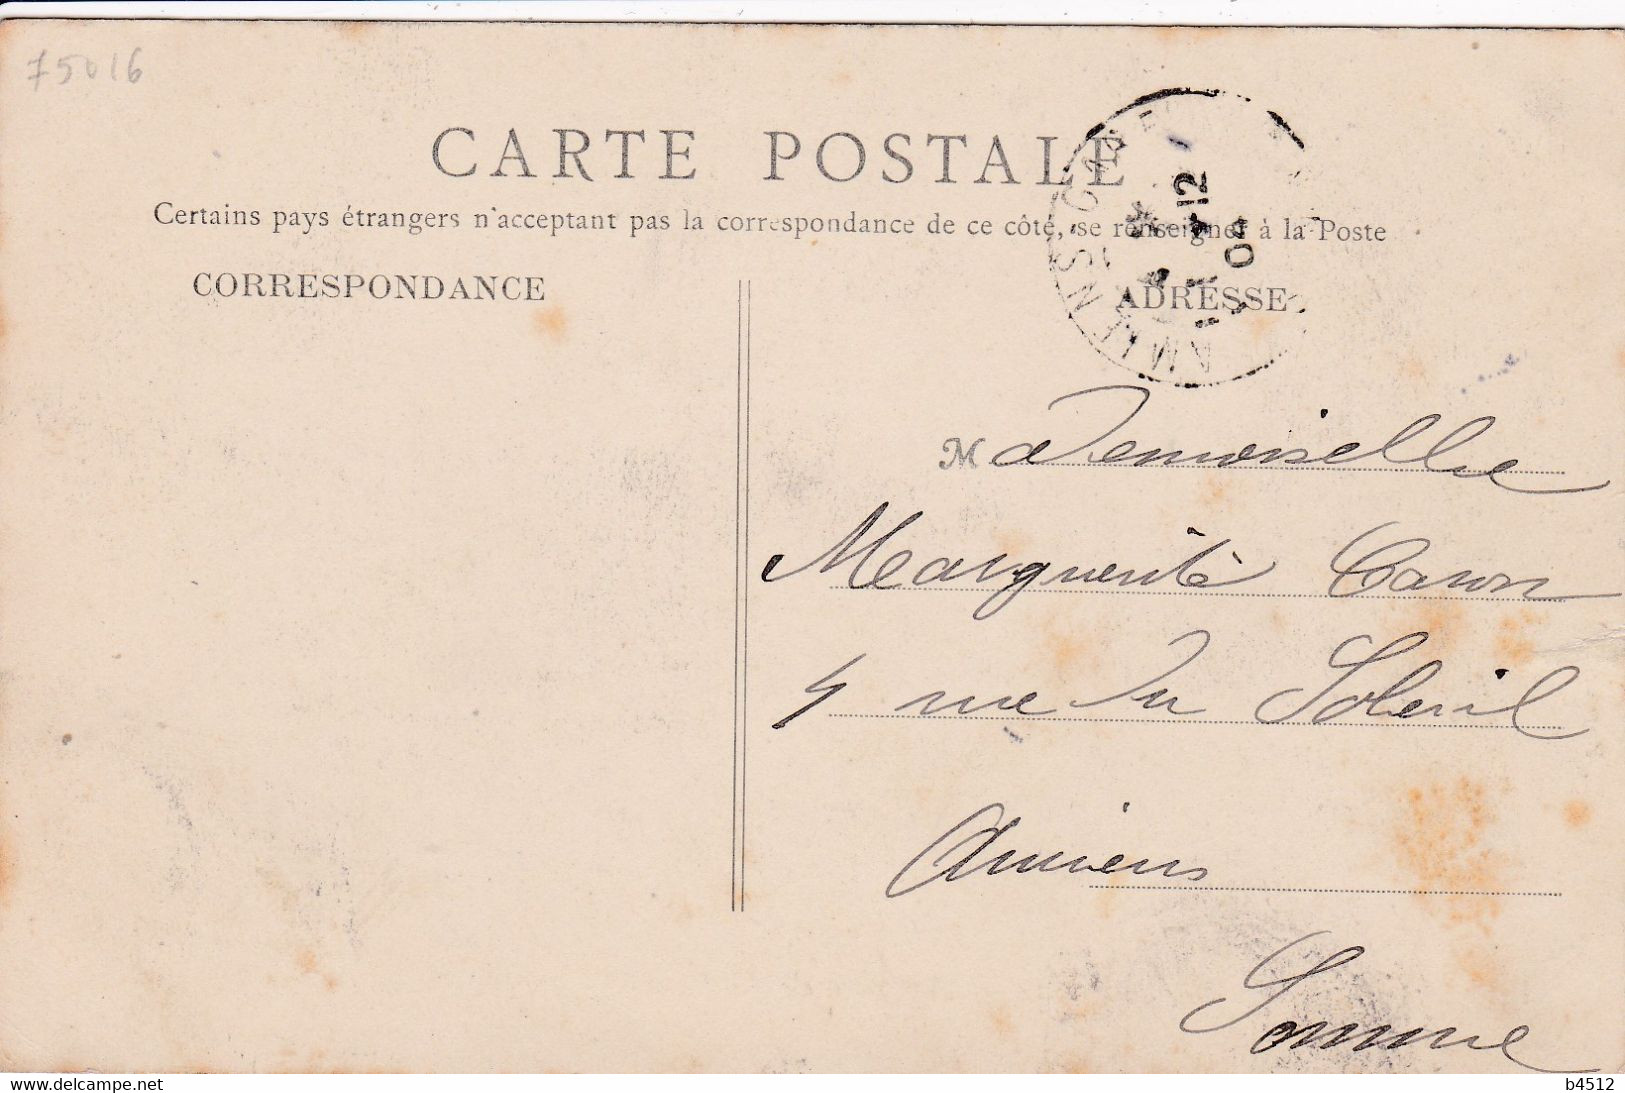 75016
CARTE POSTALE
Certains pays étrangers n'acceptant pas la correspondance de ce côté, se renseigner à la Poste
CORRESPONDANCE
ADRESSE
AMIENS GARE
12
04
Mademoiselle
Marguerite Caron
4 rue du Soleil
Amiens
Somme
www.delcampe.net
b4512